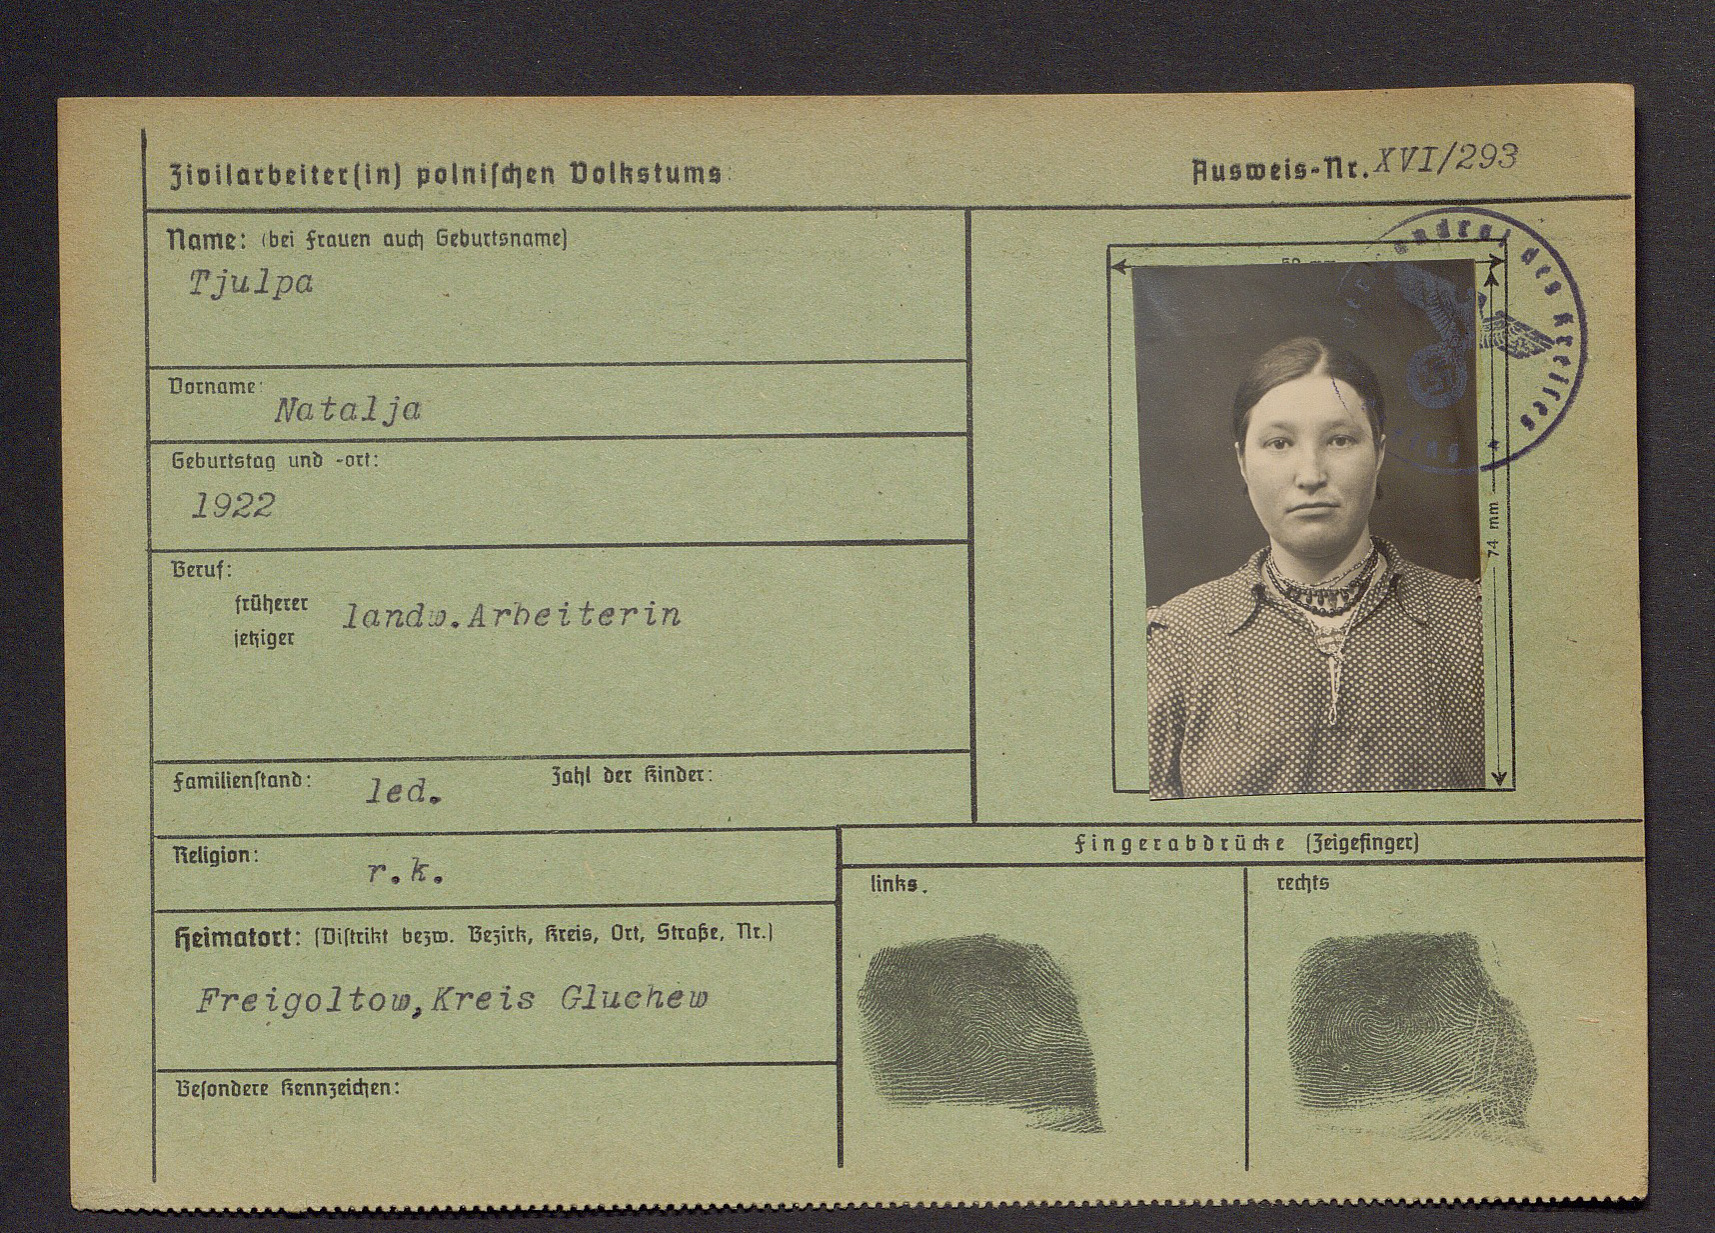 Zivilarbeiter(in) polnischen Volkstums
Ausweis-Nr. XVI/293
Name: (bei Frauen auch Geburtsname)
Tjulpa
Vorname:
Natalja
Geburtstag und -ort:
1922
Beruf:
früherer
landw.Arbeiterin
jetziger
Familienstand: led. Zahl der Kinder:
Religion: r.k.
Heimatort: (Distrikt bezw. Bezirk, Kreis, Ort, Straße, Nr.)
Freigoltow,Kreis Gluchew
Besondere Kennzeichen:
des Kreises
74 mm
Fingerabdrücke (Zeigefinger)
links.
rechts